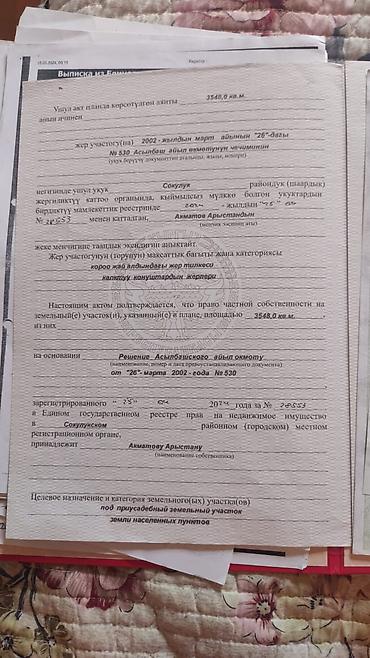 Выписка из Единого
Ушул акт планда көрсөтүлгөн аянты 3548,0 кв.м.
анын ичинен
жер участогу(на) 2002 - жылдын март айынын "26"-дагы
№ 530 Асылбаш айыл өкмөтүнүн чечиминин
(укук берүүчү документтин аталышы, жылы, номери)
негизинде ушул укук Сокулук райондук (шаардык)
жергиликтүү каттоо органында, кыймылсыз мүлккө болгон укуктардын
бирдиктүү мамлекеттик реестринде - жылдын
№ 28553 менен катталган, Акматов Арыстандын
(менчик ээсинин аты)
жеке менчигине таандык экендигин аныктайт.
Жер участогунун (торунун) максаттык багыты жана категориясы
короо жай алдындагы жер тилкеси
калктуу конуштардын жерлери
Настоящим актом подтверждается, что право частной собственности на
земельный(е) участок(и), указанный(е) в плане, площадью 3548,0 кв.м.
из них
на основании Решение Асылбашского айыл окмоту
(наименование, номер и дата правоустанавливающего документа)
от "26"- марта 2002 - года № 530
зарегистрированного года за № 28553
в Едином государственном реестре прав на недвижимое имущество
в Сокулукском районном (городском) местном
регистрационном органе,
принадлежит Акматову Арыстану
(наименование собственника)
Целевое назначение и категория земельного(ых) участка(ов)
под приусадебный земельный участок
земли населенных пунктов